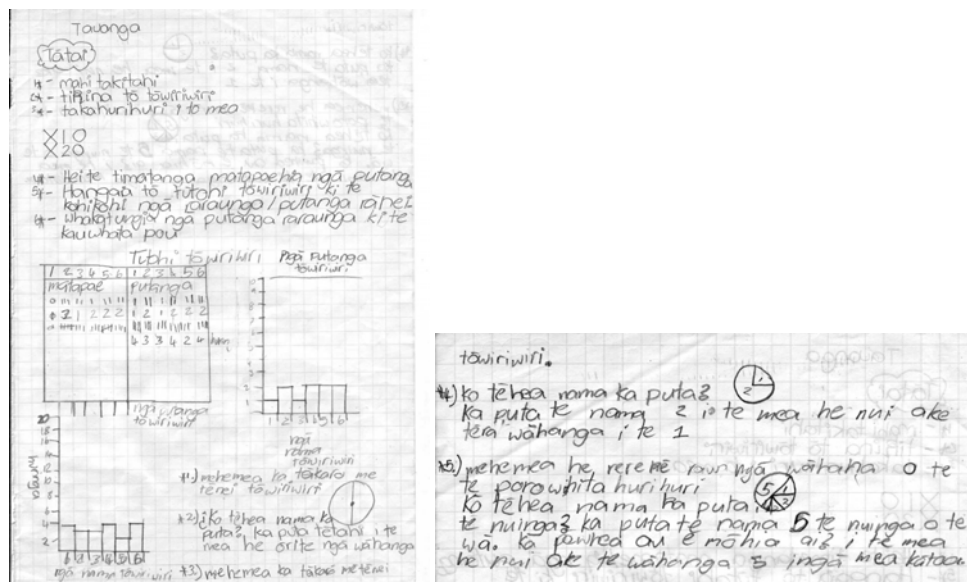 Tauanga
Tātai
1 - mahi takitahi
2 - tīkina tō tōwiriwiri
3 - takahurihuri i tō mea
X10
X20
4 - Hei te timatanga matapaehia ngā putanga
5 - Hangaia tō tūtohi tōwiriwiri ki te
kohikohi ngā raraunga/putanga rānei
6 - whakaturia ngā putanga raraunga ki te
kauwhata pou
Tūtohi tōwiriwiri
1 2 3 4 5 6 1 2 3 4 5 6
matapae putanga
2 1 2 2 2 1 2 1 2 2 2
4 3 3 4 2 4
Ngā Putanga
tōwiriwiri
1 2 3 4 5 6
ngā
nama
tōwiriwiri
ngā putanga
tōwiriwiri
20
18
16
14
12
10
8
6
4
2
1 2 3 4 5 6
ngā nama tōwiriwiri
*1) mehemea ka tākaro me
tērei tōwiriwiri
*2) Ko tēhea nama ka
puta? ka puta tētahi i te
mea he ōrite ngā wāhanga
*3) mehemea ka tākaro me tērei
tōwiriwiri.
1
2
*4) Ko tēhea nama ka puta?
Ka puta te nama 2 i te mea he nui ake
tērā wāhanga i te 1
*5) mehemea he rerekē rawa ngā wāhanga o te
te porowhita hurihuri
Ko tēhea nama ka puta
te nuinga? ka puta te nama 5 te nuinga o te
wā. Ka pēwhea au e mōhio ai? i te mea
he nui ake te wāhanga 5 i ngā mea katoa.